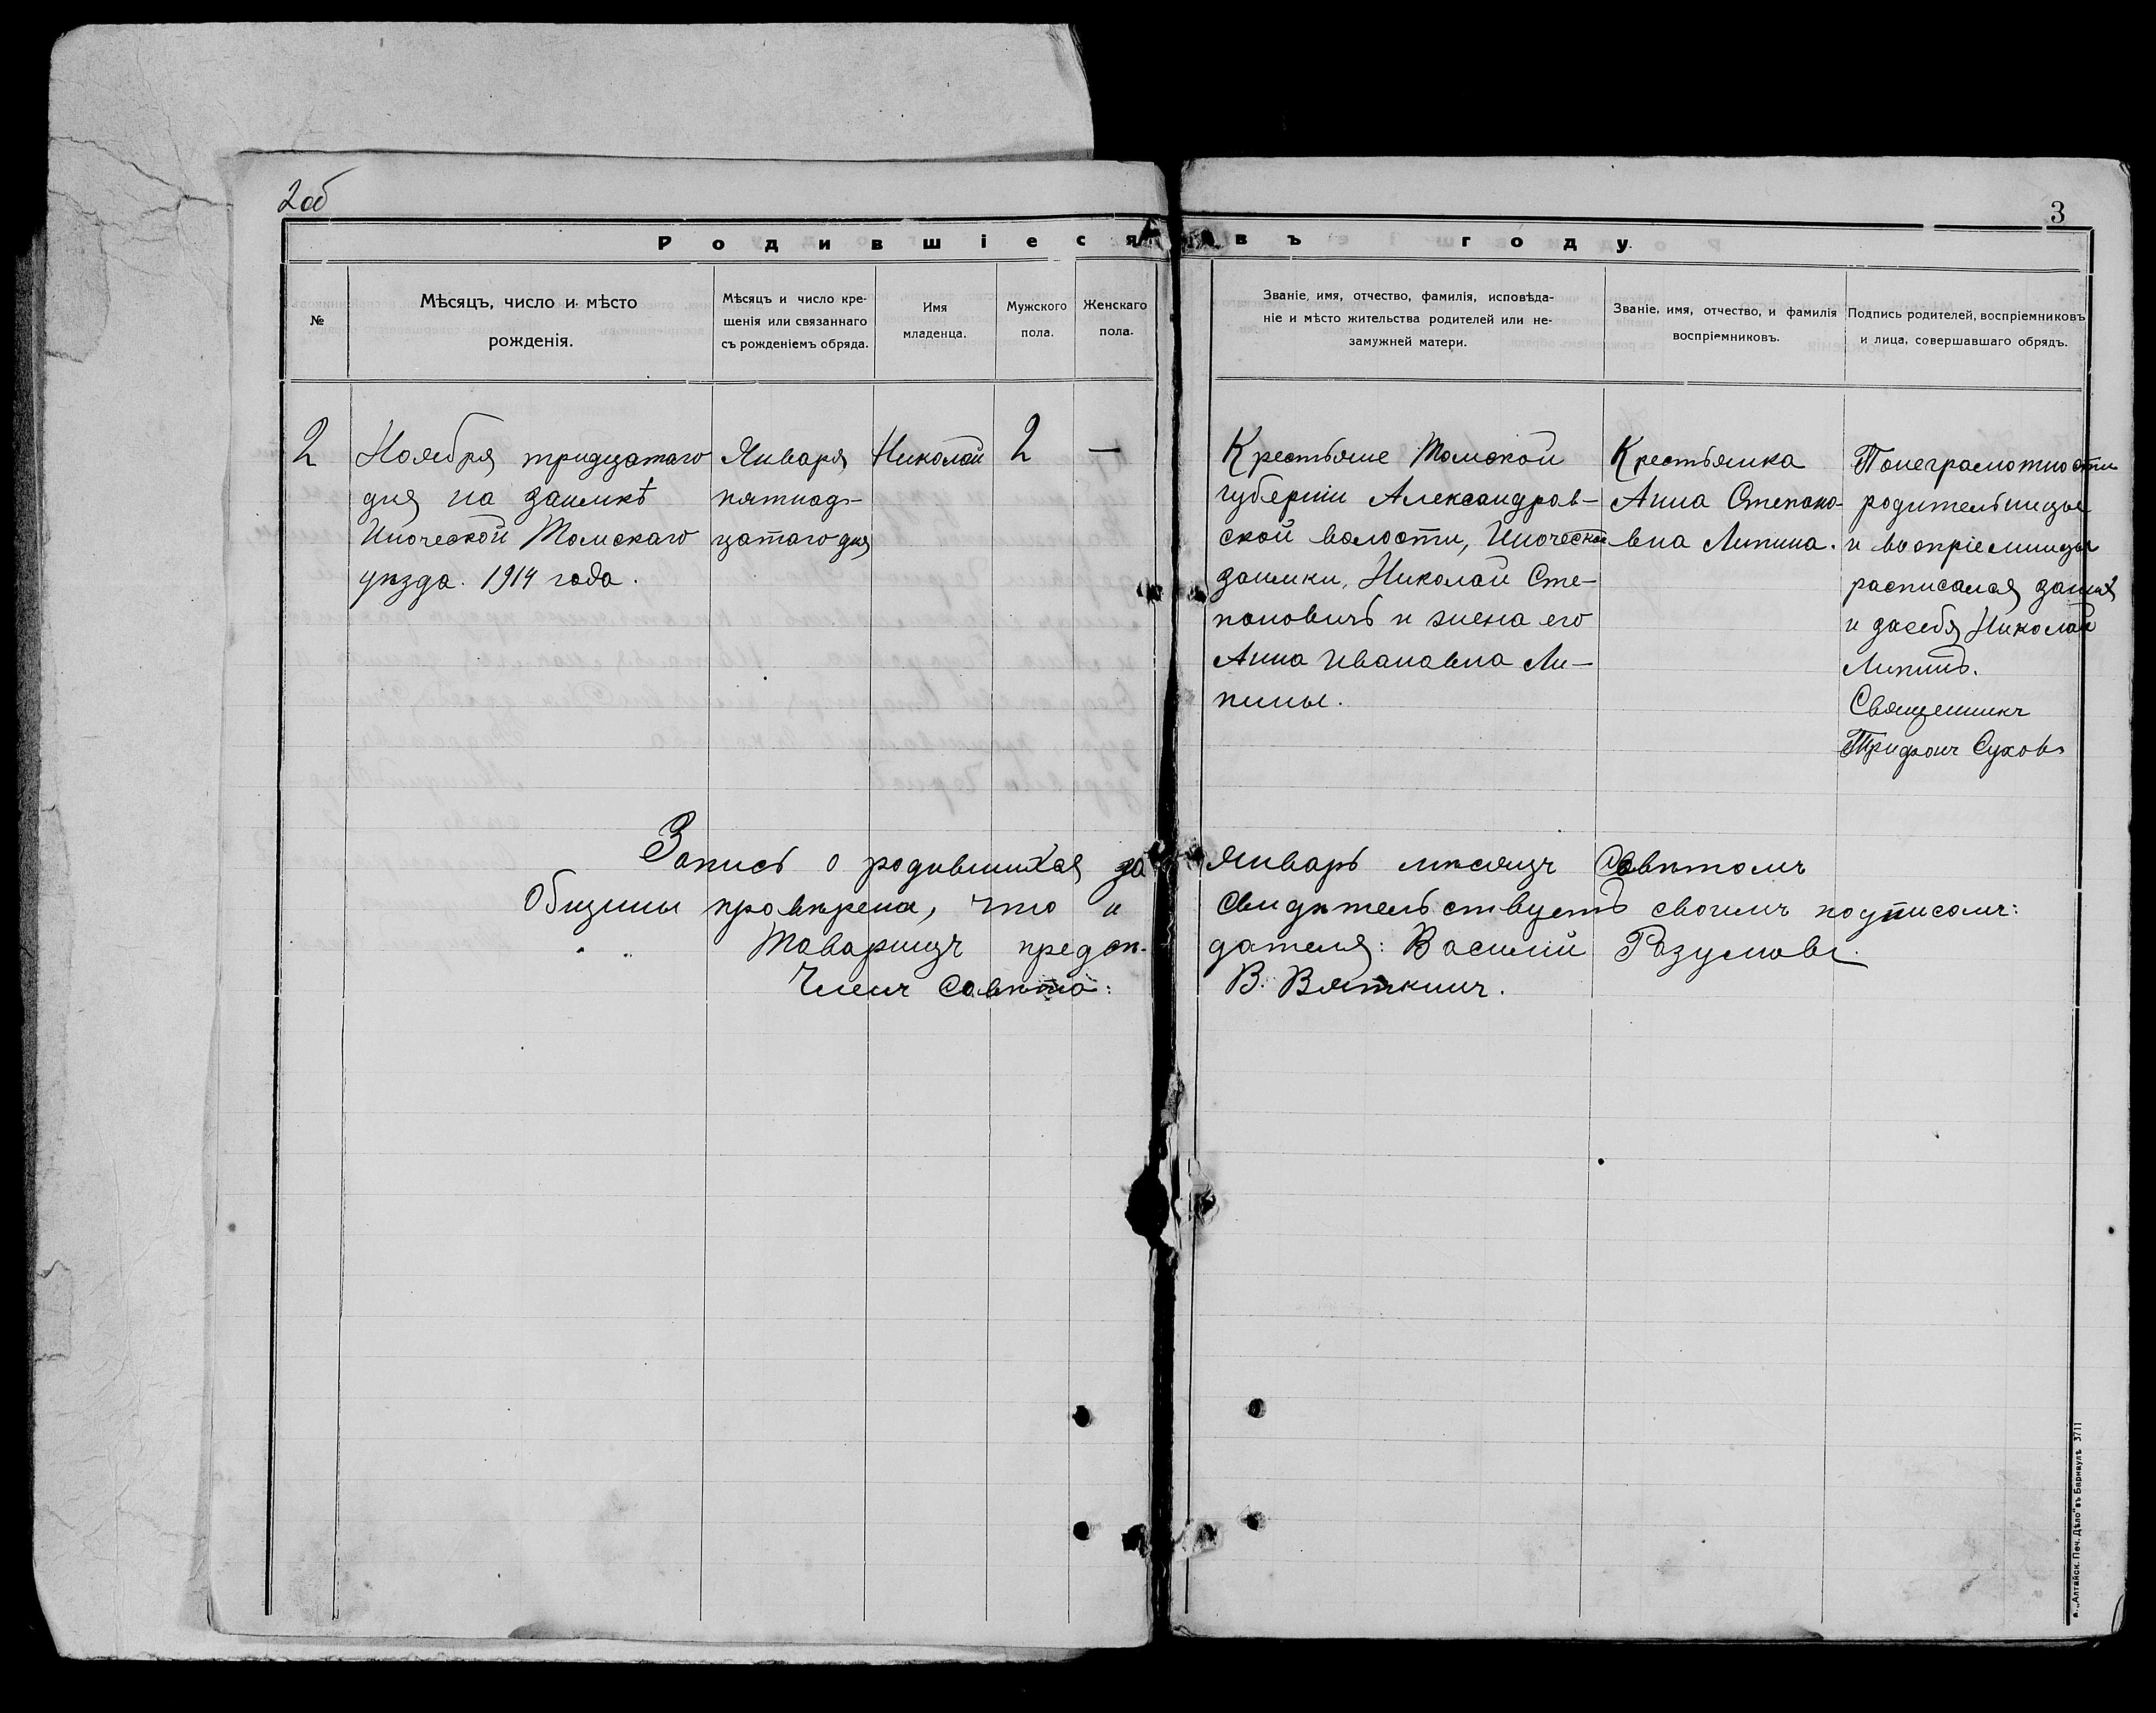 2об
3
Родившіеся въ году.
№
Мѣсяцъ, число и мѣсто
рожденія.
Мѣсяцъ и число кре-
щенія или связаннаго
съ рожденіемъ обряда.
Имя
младенца.
Мужского
пола.
Женскаго
пола.
Званіе, имя, отчество, фамилія, исповѣда-
ніе и мѣсто жительства родителей или не-
замужней матери.
Званіе, имя, отчество, и фамилія
воспріемниковъ.
Подпись родителей, воспріемниковъ
и лица, совершавшаго обрядъ.
2
Ноября тридцатаго
дня на заимкѣ
Иноческой Томскаго
уѣзда. 1914 года.
Января
пятнад-
цатаго дня
Николай
2
—
Крестьяне Томской
губерніи Александров-
ской волости, Иноческой
заимки, Николай Сте-
пановичъ и жена его
Анна Ивановна Ли-
пины.
Крестьянка
Анна Степано-
вна Липина.
По неграмотности
родительницы
и воспріемницы
расписался за них
и за себя Николай
Липинъ.
Священникъ
Трифонъ Суховъ
Запись о родившихся за Январь мѣсяцъ Совѣтомъ
Общины провѣрена, что и свидѣтельствуетъ своимъ подписомъ:
Товарищъ предсѣ-дателя: Василій Разумовъ.
Членъ Совѣта: В. Вяткинъ.
„Алтайск. Печ. Дѣло" въ Барнаулѣ 3711